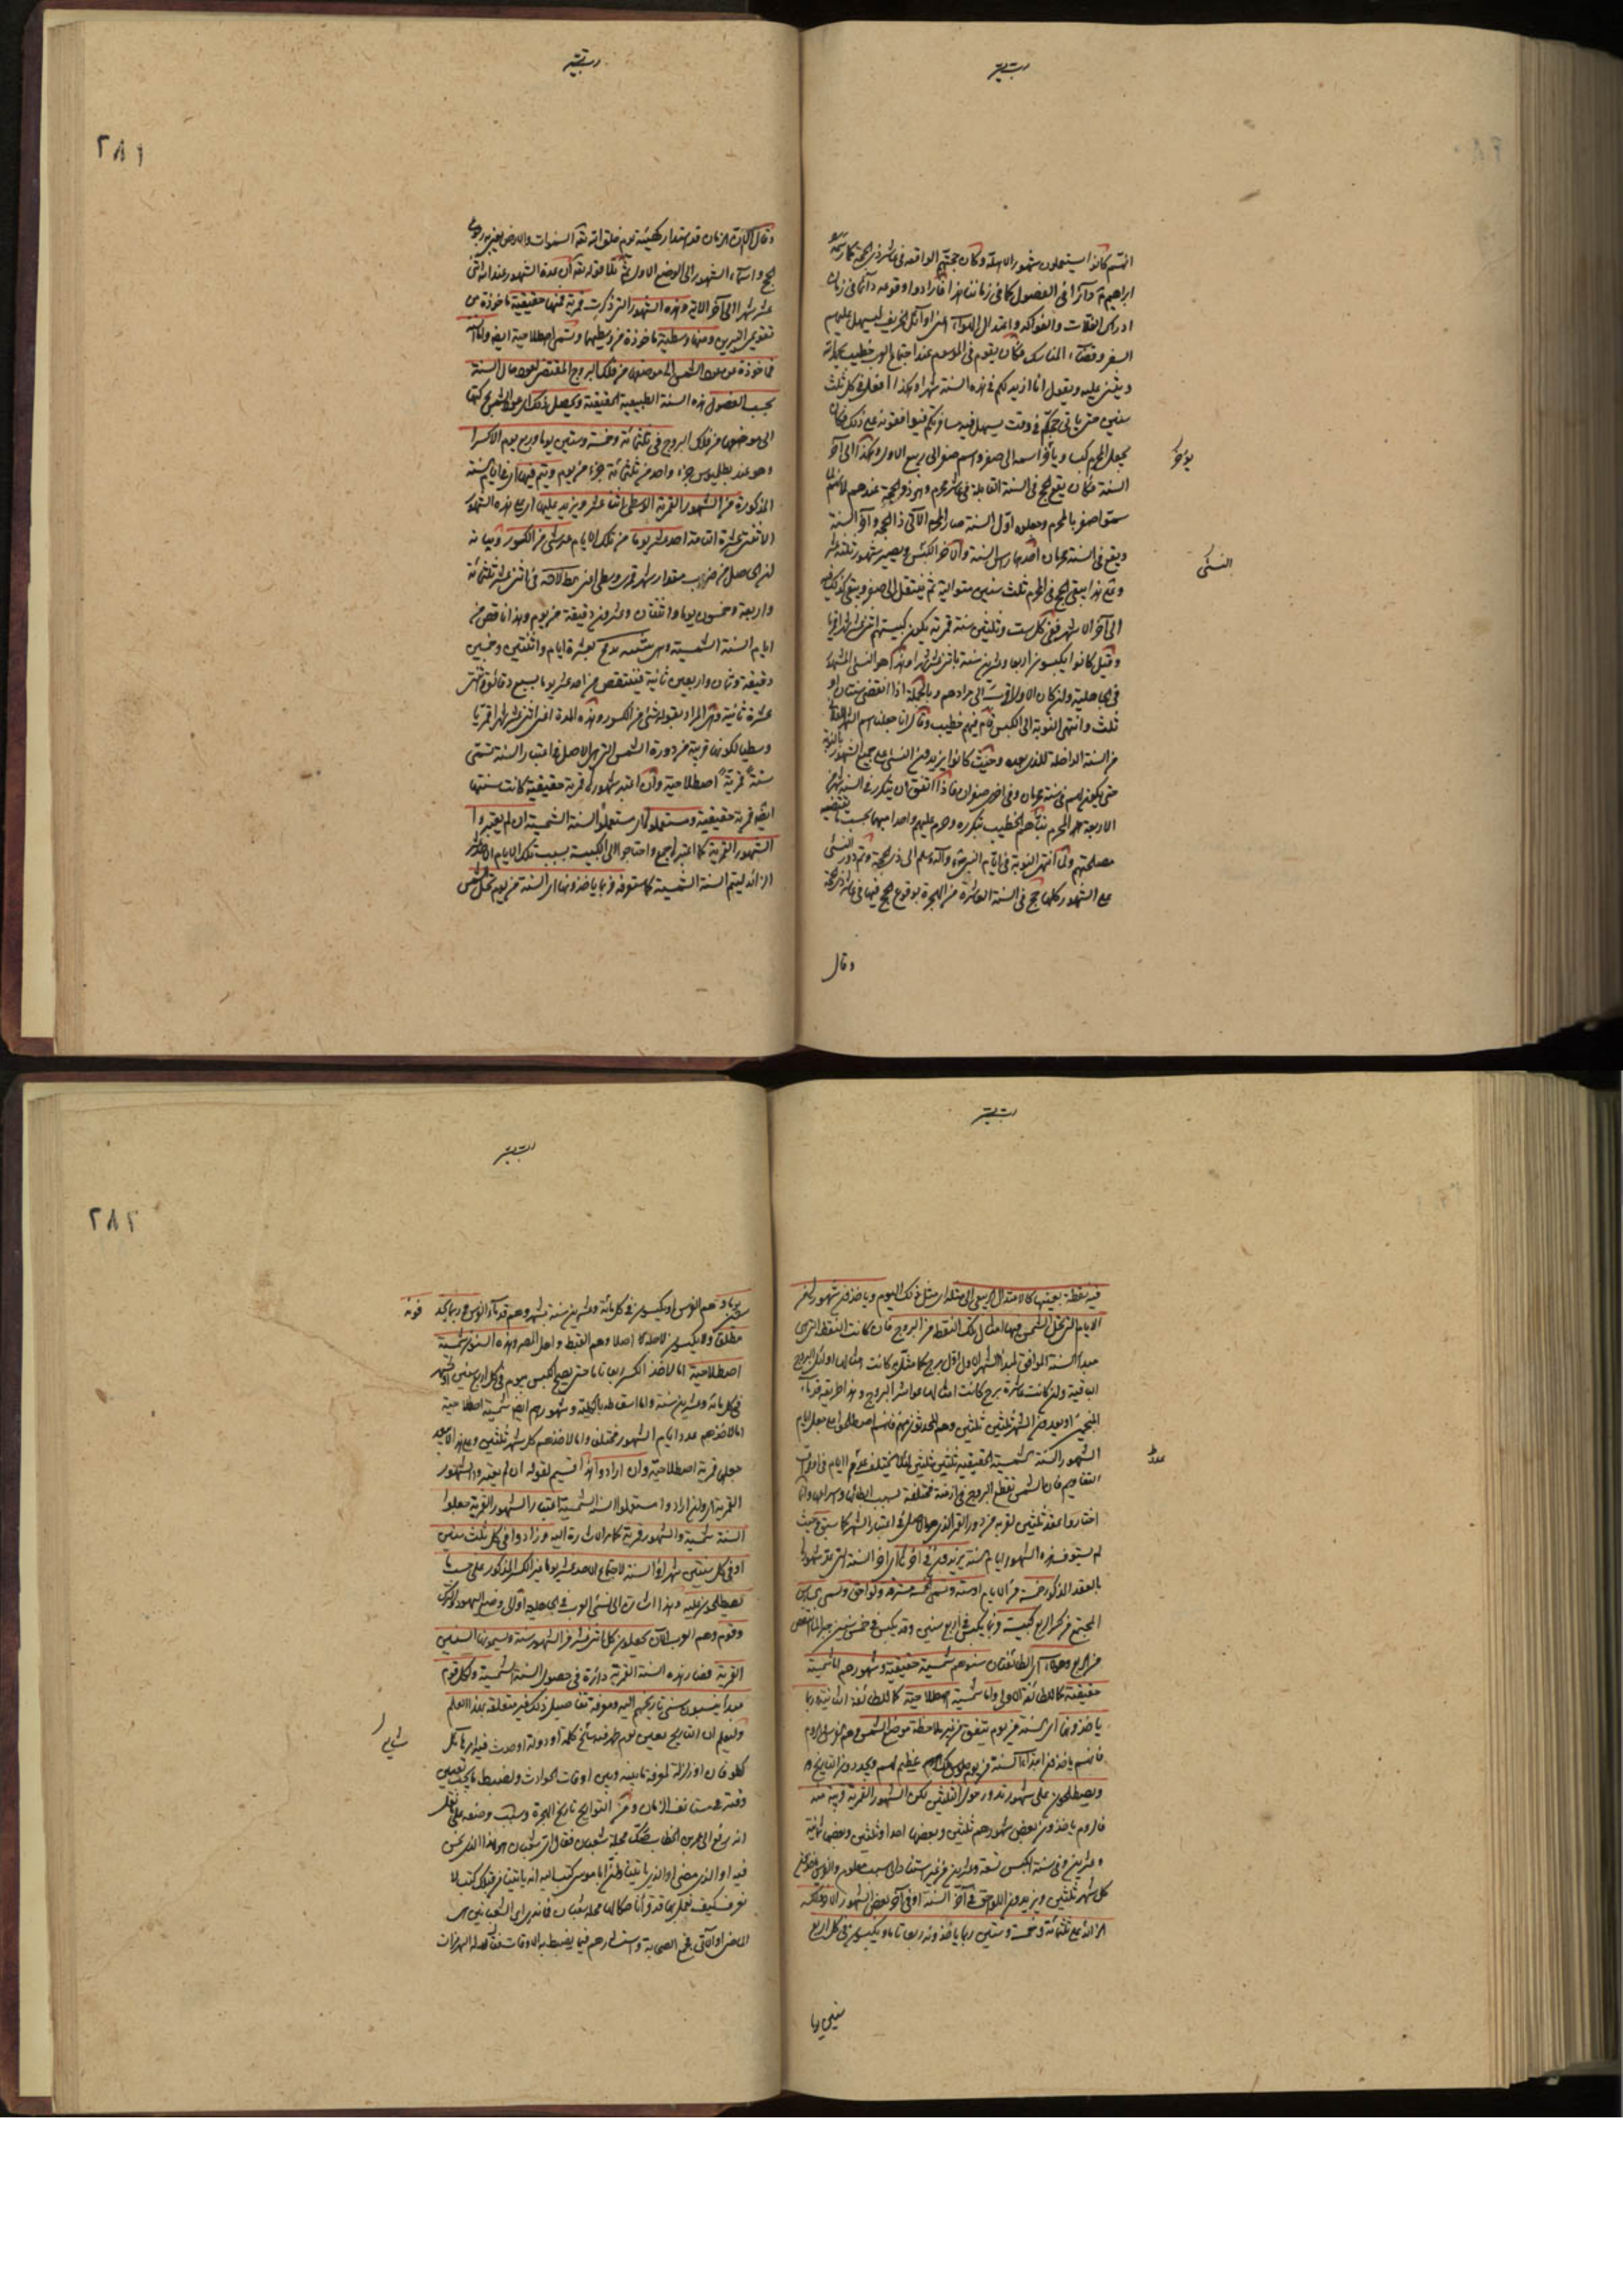 انهم كانوا يستعملون شهور الاهلة وكان حجهم الواقع فى عاشر ذى الحجة كما رسمه
ابراهيم دائرا فى الفصول كما فى زماننا هذا فارادوا وقوعه دائما فى زمان
ادراك الغلات والفواكه واعتدال الهواء اعنى اوائل الخريف ليسهل عليهم
السفر وقضاء المناسك فكان يقوم فى الموسم عند اجتماع العرب خطيب يحمد الله
ويثنى عليه ويقول انا ازيد لكم فى هذه السنة شهرا وهكذا افعل فى كل ثلث
سنين حتى ياتى حجكم فى وقت يسهل فيه مسافرتكم فيوافقونه على ذلك فكان
يجعل المحرم كبسا ويؤخر اسمه الى صفر واسم صفر الى ربيع الاول وهكذا الى آخر
يؤخر
السنة فكان يقع الحج فى السنة القابلة فى عاشر محرم وهو ذو الحجة عندهم لانهم
سموا صفر بالمحرم وجعلوه اول السنة صار المحرم الآتى ذا الحجة وآخر السنة
ويقع فى السنة محرمان احدهما رأس السنة والآخر الكبس ويصير شهورها ثلثة عشر
النسئ
وعلى هذا يبقى الحج فى المحرم ثلث سنين متوالية ثم ينتقل الى صفر ويبقى كذلك
الى آخر الاشهر ففى كل ست وثلثين سنة قمرية تكون كبيستهم اثنى عشر شهرا قمريا
وقيل كانوا يكبسون اربعا وعشرين سنة باثنى عشر شهرا وهذا هو النسئ المشهور
فى الجاهلية وان كان الاول اقرب الى مرادهم وبالجملة اذا انقضى سنتان او
ثلث وانتهى النوبة الى الكبس قام فيهم خطيب وقال انا جعلنا اسم الشهر الفلانى
من السنة الداخلة للذى بعده وحيث كانوا يزيدون النسئ على جميع الشهور بالنوبة
حتى يكون لهم فى سنة محرمان وفى اخرى صفران فاذا اتفق ان يتكرر فى السنة شهر من
الاربعة الحرم نبأهم الخطيب بتكرره وحرم عليهم واحدا منهما بحسب ما يقتضيه
مصلحتهم ولما انتهى النوبة فى ايام النبى وآله وسلم الى ذى الحجة وتم دور النسئ
على الشهور كلها حج فى السنة العاشرة من الهجرة بوقوع الحج فيها فى عاشر ذى الحجة
وقال
٢٨١
وقال الا ان الزمان قد استدار كهيئته يوم خلق الله تعالى السموات والارض يعنى به رجوع
الحج واسماء الشهور الى الوضع الاول ثم تلا قوله تعالى ان عدة الشهور عند الله اثنى
عشر شهرا الى آخر الآية وهذه الشهور التى ذكرت قمرية فمنها حقيقية ماخوذة من
تقويمى النيرين ومنها وسطية ماخوذة من وسطيهما وتسمى اصطلاحية ايضا
ماخوذة من عود الشمس الى موضعها من فلك البروج المقتضى لعود حال السنة
بحسب الفصول هذه السنة الطبيعية الحقيقية ويحصل ذلك اى عود الشمس بحركتها
الى موضعها من فلك البروج فى ثلثمائة وخمسة وستين يوما وربع يوم الا كسرا
وهو عند بطليموس جزء واحد من ثلثمائة جزء من يوم ويتم فيها اى فى ايام السنة
المذكورة من الشهور القمرية الوسطى اثنا عشر ويزيد عليها اى على هذه الشهور
الاثنى عشر التامة احد عشر يوما من تلك الايام مع شئ من الكسور وبيانه
ان الحاصل من ضرب مقدار شهر قمرى وسطى اعنى كط لا ن فى اثنى عشر ثلثمائة
واربعة وخمسون يوما واثنتان وعشرون دقيقة من يوم وهذا ناقص من
ايام السنة الشمسية بعشرة ايام واثنتين وخمسين
دقيقة وثمان واربعين ثانية فينتقص من احد عشر يوما بسبع دقائق واثنتى
عشرة ثانية وهى المراد بقوله شئ من الكسور وهذه المدة اعنى اثنى عشر شهرا قمريا
وسطيا لكونها قريبة من دورة الشمس التى هى الاصل فى اعتبار السنة تسمى
سنة قمرية اصطلاحية وان اعتبر شهور قمرية حقيقية كانت سنتها
ايضا قمرية حقيقية ومستعملو السنة الشمسية ان لم يعتبروا
الشهور القمرية كما اعتبر واحتاجوا الى الكبيسة بسبب تلك الايام الاحد عشر
الزائد ليتم السنة الشمسية كما ستعرفه فربما ياخذونها اى السنة من يوم تحل الشمس
فيه نقطة بعينها كالاعتدال الربيعى الى مثله اى مثل ذلك اليوم وياخذون شهورها من
الايام التى تحل الشمس فيها امثال تلك النقطة من البروج فان كانت النقطة التى هى
مبدأ السنة الموافق لمبدأ الشهر الاول اول برج كما مثلنا به كانت امثالها اوائل البروج
الباقية وان كانت عاشرة برج كانت امثالها عواشر البروج وهذا طريقة قدماء
المنجمين او يعدون الشهر ثلثين ثلثين وهم المحدثون منهم فانهم اصطلحوا على جعل ايام
الشهور السنة الشمسية الحقيقية ثلثين ثلثين لئلا يختلف عدد الايام فى اوقات
عدد
التقاويم فان الشمس تقطع البروج فى ازمنة مختلفة بسبب ابطائها واسراعها وانما
اختاروا عقد ثلثين لقربه من دور القمر الذى هو الاصل فى اعتبار الشهر كما سبق وحيث
لم يستوف هذه الشهور ايام السنة يزيدون فى آخرها اى آخر السنة التى عدت شهورها
بالعقد المذكور خمسة من الايام او ستة وتسمى الخمسة مسترقة ولواحق وتسمى
المجتمع من كسر الربع كبيسة وانما يكبس فى اربع سنين وقد يكبس فى خمس سنين جبرا لما نقص
من الربع وهؤلاء اى الطائفتان سنوهم شمسية حقيقية وشهورهم اما شمسية
حقيقية كما للطائفة الاولى واما شمسية اصطلاحية كما للطائفة الثانية وربما
ياخذونها اى السنة من يوم يتفق من غير ملاحظة موضع الشمس وهم الفرس والروم
فانهم ياخذون ابتداء السنة من يوم جلوس ملك عظيم لهم ويجددون التاريخ به
ويصطلحون على شهور تدور حول الثلثين لكون الشهور القمرية قريبة منه
فالروم ياخذون بعض شهورهم ثلثين وبعضها احدا وثلثين وبعضها ثمانية
وعشرين وفى سنة الكبس تسعة وعشرين من غير استناد الى سبب معلوم والفرس ياخذون
كل شهر ثلثين ويزيدون اللواحق فى آخر السنة او فى آخر بعض الشهور
الزائد على ثلثمائة وخمسة وستين ربما ياخذونه ربعا تاما ويكبسون فى كل اربع
سنين يوما
٢٨٢
يوما وهم الفرس او يكبسون فى كل مائة وعشرين سنة بشهر وهم قدماء الفرس
مطلقا ولا يكبسون لاجله اصلا وهم القبط واهل المصر وهذه السنون شمسية
اصطلاحية اما لاخذ الكسر ربعا تاما حتى يصح الكبس بيوم فى كل اربع سنين او بشهر
فى كل مائة وعشرين سنة واما اسقاطه بالكلية وشهورهم ايضا شمسية اصطلاحية
اما لاخذهم عدد ايام الشهور مختلفا واما لاخذهم كل شهر ثلثين
جعلها قمرية اصطلاحية وان ارادوا هذا قسيم لقوله ان لم يعتبروا الشهور
القمرية اى وان ارادوا مستعملوا السنة الشمسية اعتبار الشهور القمرية جعلوا
السنة شمسية والشهور قمرية كما مر الاشارة اليه وزادوا فى كل ثلث سنين
او فى كل سنتين شهرا فى السنة لاجتماع الاحد عشر يوما مع الكسر المذكور على حسب ما
يصطلحون عليه وهذا اشارة الى نسئ العرب فى الجاهلية او الى وضع اليهود والترك
وقوم وهم العرب الآن يجعلون كل اثنى عشر من الشهور سنة ويسمونها السنين
القمرية فصار هذه السنة القمرية دائرة فى فصول السنة الشمسية ولكل قوم
مبدأ ينسبون سنى تاريخهم اليه ومعرفة تفاصيل ذلك غير متعلقة بهذا العلم
وليعلم ان التاريخ تعيين يوم ظهر فيه ملة او دولة او حدث فيه امر هائل
كطوفان او زلزلة لمعرفة ما بينه وبين اوقات الحوادث ولضبط ما يجب تعيين
وقته فى مستانف الزمان ومن التواريخ تاريخ الهجرة وسبب وضعه على ما نقل
انه رفع الى عمر بن الخطاب صك محله شعبان فقال اى شعبان هو هذا الذى نحن
فيه او الذى مضى او الذى ياتينا وقيل ان ابا موسى كتب اليه انه ياتينا من قبلك كتب لا
نعرف كيف نعمل بها قد قرأنا صكا كان محله شعبان فما ندرى اى الشعبانين هو
الماضى او الآتى فجمع الصحابة واستشارهم فيما يضبط به الاوقات فقال له الهرمزان